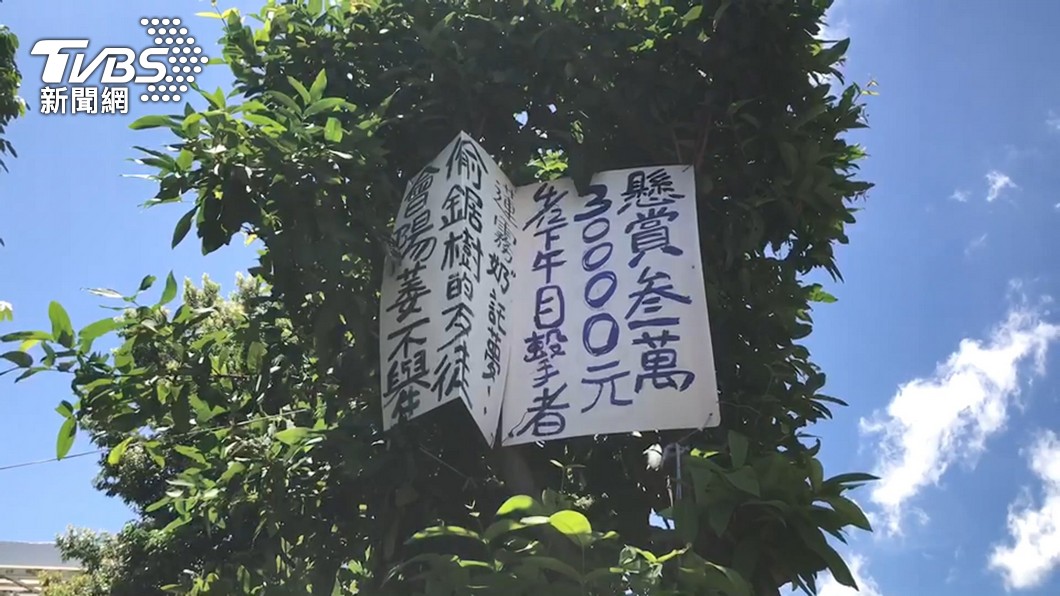 TVBS
新聞網
懸賞叁萬
30000元
下午目擊者
蓮霧奶託夢:
偷鋸樹的歹徒
會陽萎不舉